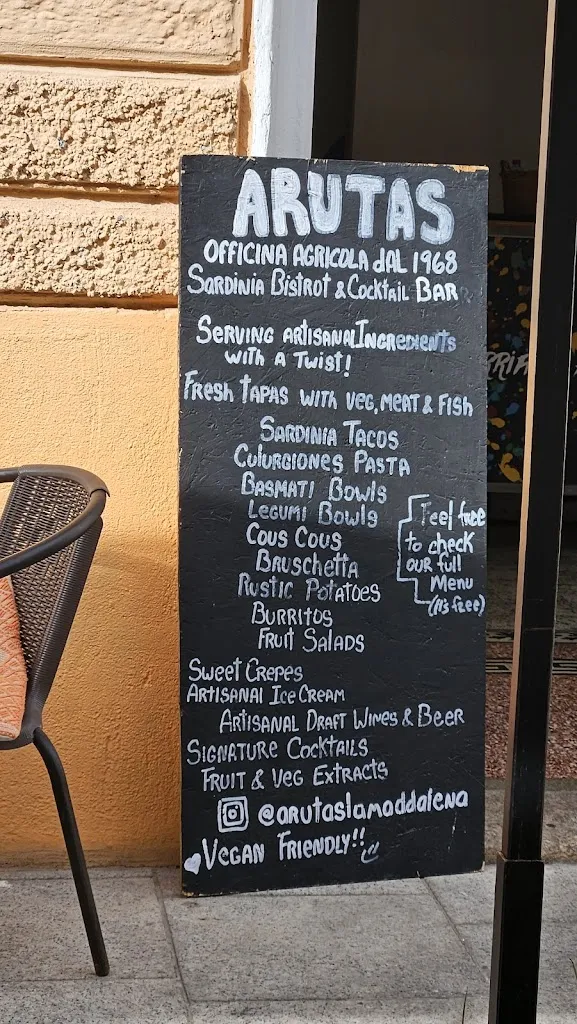 ARUTAS
OFFICINA AGRICOLA dAL 1968
SARDINIA BISTROT & COCKTAIL BAR
SERVING ARTISANAL INGREDIENTS
WITH A TWIST!
FRESH TAPAS WITH VEG, MEAT & FISH
SARDINIA TACOS
CULURGIONES PASTA
BASMATI BOWLS
LEGUMI BOWLS
COUS COUS
BRUSCHETTA
RUSTIC POTATOES
BURRITOS
FRUIT SALADS
Feel free
to check
OUR full
Menu
(it's free)
SWEET CREPES
ARTISANAL ICE CREAM
ARTISANAL DRAFT WINES & BEER
SIGNATURE COCKTAILS
FRUIT & VEG EXTRACTS
@arutaslamaddalena
VEGAN FRIENDLY!!